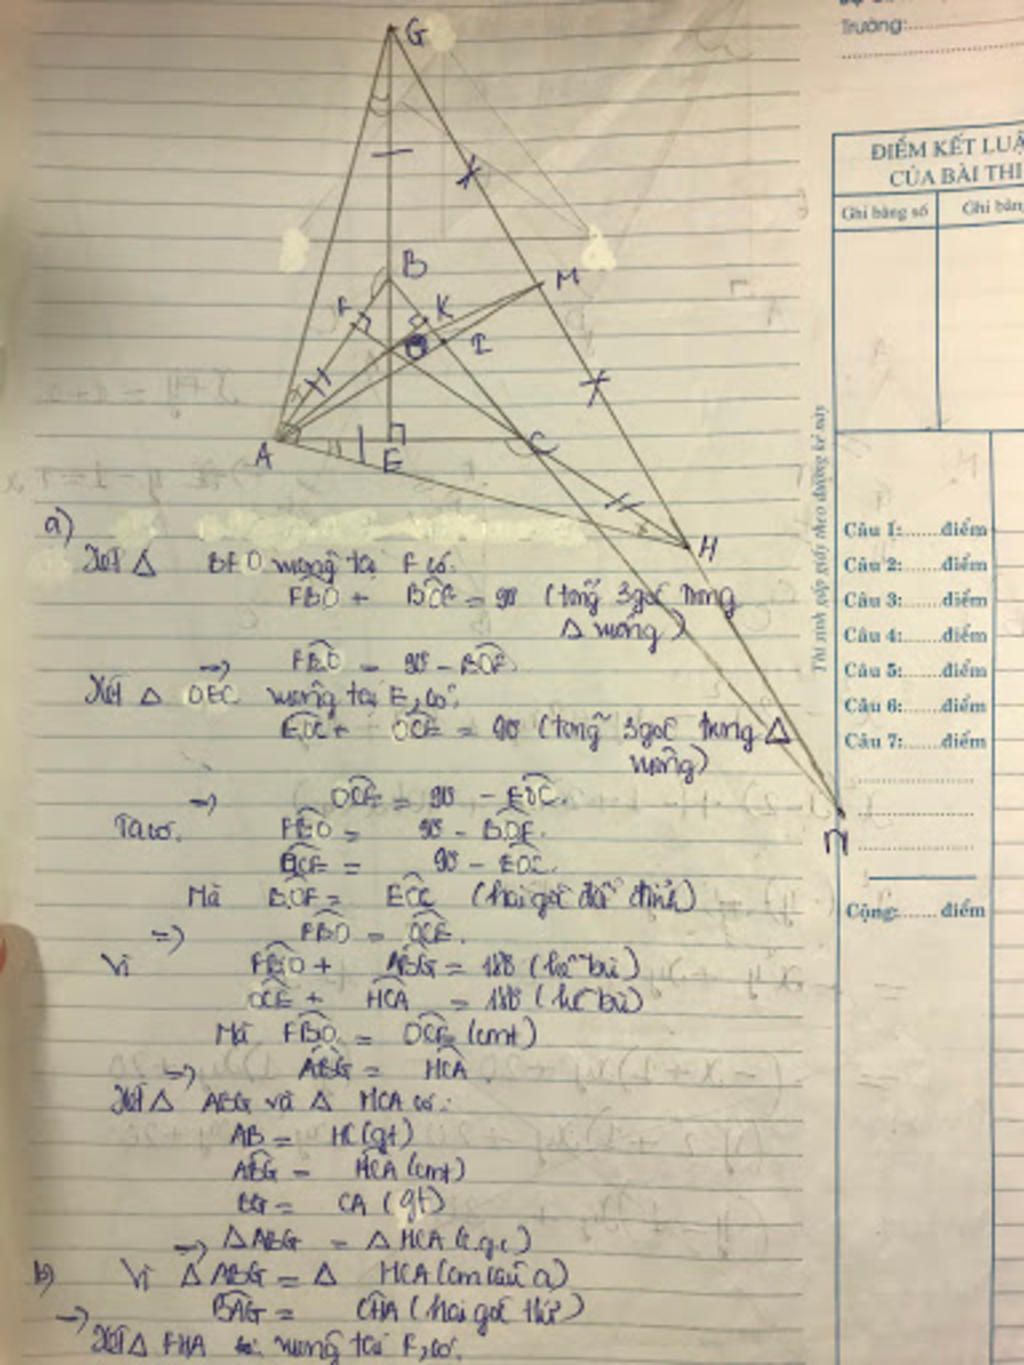 Trường:
ĐIỂM KẾT LUẬ
CỦA BÀI THI
Ghi bằng số
Ghi bằng
G
B
M
F
K
O
I
A
E
C
H
N
Thí sinh gấp giấy theo đường kẻ này
Câu 1:......điểm
Câu 2:......điểm
Câu 3:......điểm
Câu 4:......điểm
Câu 5:......điểm
Câu 6:......điểm
Câu 7:......điểm
Cộng:......điểm
a)
Xét Δ BFO vuông tại F có:
FBO + BOF = 90 (tổng 3 góc trong
Δ vuông)
=> FBO = 90 - BOF.
Xét Δ OEC vuông tại E, có:
EOC + OCE = 90 (tổng 3 góc trong Δ
vuông)
=> OCE = 90 - EOC.
Ta có: FBO = 90 - BOF.
OCE = 90 - EOC.
Mà BOF = EOC (hai góc đối đỉnh)
=> FBO = OCE.
Vì FBO + ABG = 180 (kề bù)
OCE + HCA = 180 (kề bù)
Mà FBO = OCE (cmt)
=> ABG = HCA.
Xét Δ ABG và Δ HCA có:
AB = HC (gt)
ABG = HCA (cmt)
BG = CA (gt)
=> Δ ABG = Δ HCA (c.g.c)
b) Vì Δ ABG = Δ HCA (cm câu a)
=> BAG = CHA (hai góc t/ứ)
Xét Δ FHA vuông tại F, có.